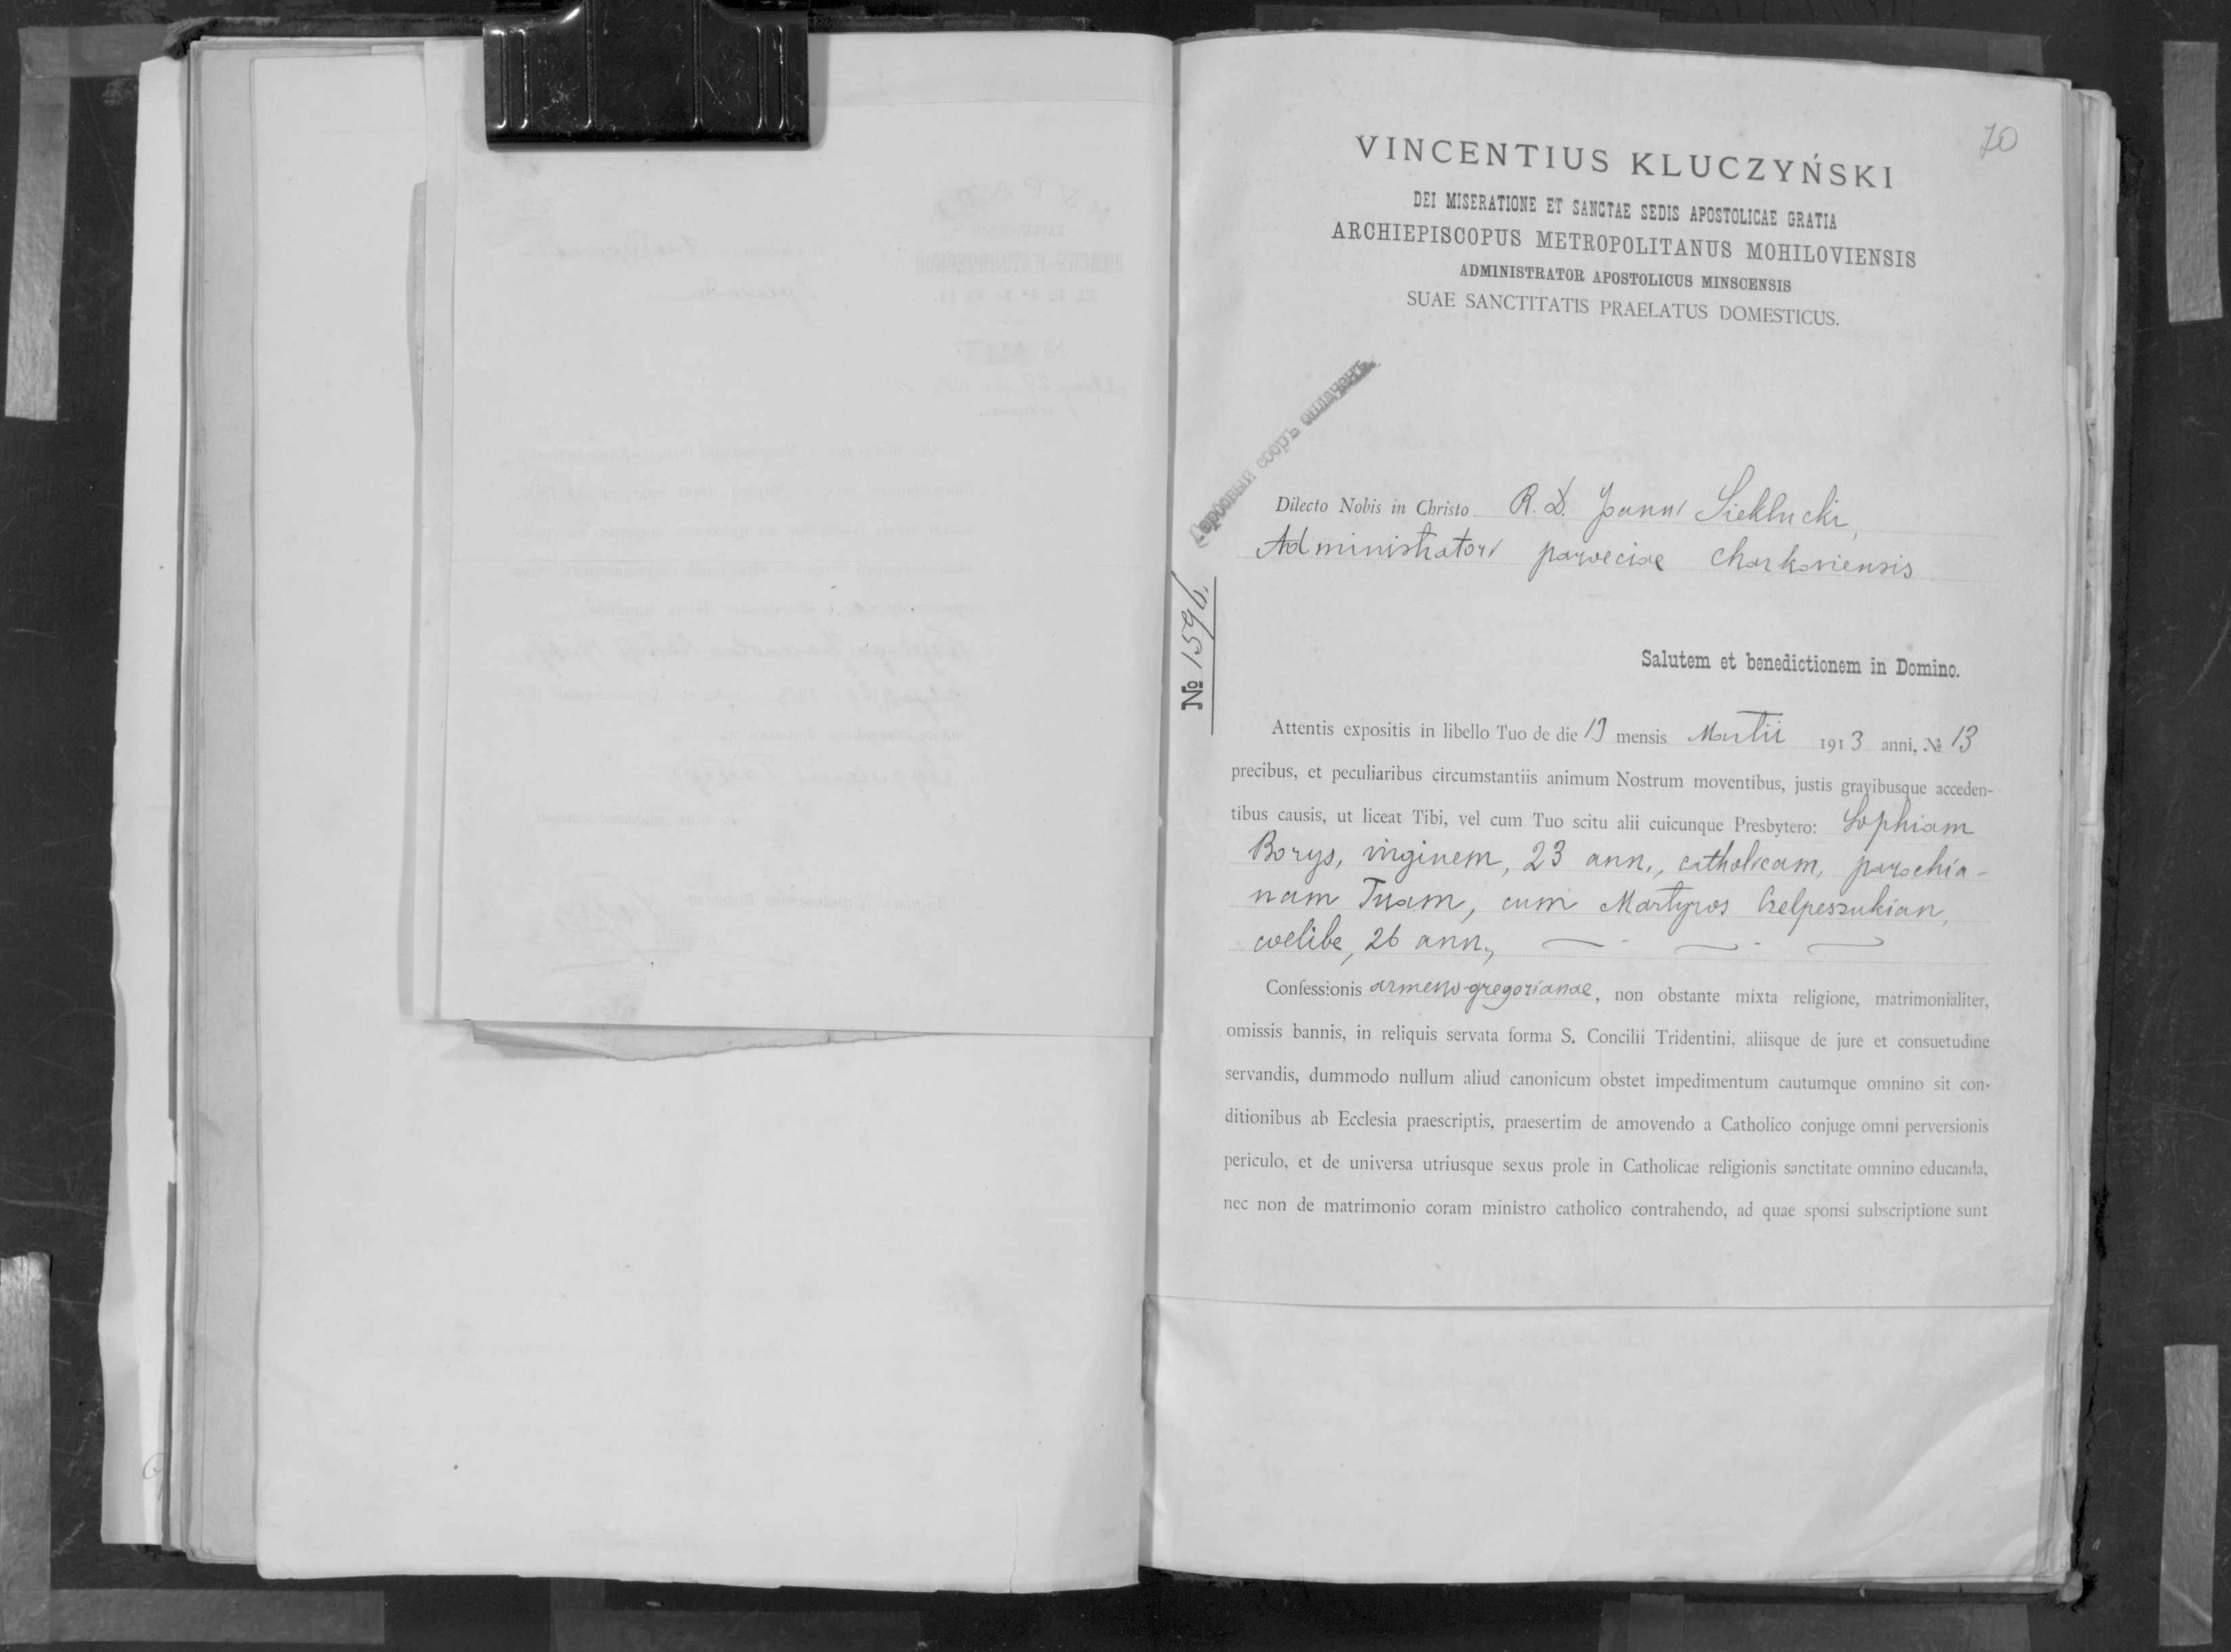 70
VINCENTIUS KLUCZYŃSKI
DEI MISERATIONE ET SANCTAE SEDIS APOSTOLICAE GRATIA
ARCHIEPISCOPUS METROPOLITANUS MOHILOVIENSIS
ADMINISTRATOR APOSTOLICUS MINSCENSIS
SUAE SANCTITATIS PRAELATUS DOMESTICUS.
Гербовый сборъ оплаченъ.
№ 1596.
Dilecto Nobis in Christo R. D. Joanni Sieklucki,
Administratori paroeciae Charkoviensis
Salutem et benedictionem in Domino.
Attentis expositis in libello Tuo de die 13 mensis Martii 1913 anni, № 13
precibus, et peculiaribus circumstantiis animum Nostrum moventibus, justis gravibusque acceden-
tibus causis, ut liceat Tibi, vel cum Tuo scitu alii cuicunque Presbytero: Sophiam
Borys, virginem, 23 ann., catholicam, parochia-
nam Tuam, cum Martyros
coelibe, 26 ann.,
Confessionis armeno-gregorianae, non obstante mixta religione, matrimonialiter,
omissis bannis, in reliquis servata forma S. Concilii Tridentini, aliisque de jure et consuetudine
servandis, dummodo nullum aliud canonicum obstet impedimentum cautumque omnino sit con-
ditionibus ab Ecclesia praescriptis, praesertim de amovendo a Catholico conjuge omni perversionis
periculo, et de universa utriusque sexus prole in Catholicae religionis sanctitate omnino educanda,
nec non de matrimonio coram ministro catholico contrahendo, ad quae sponsi subscriptione sunt